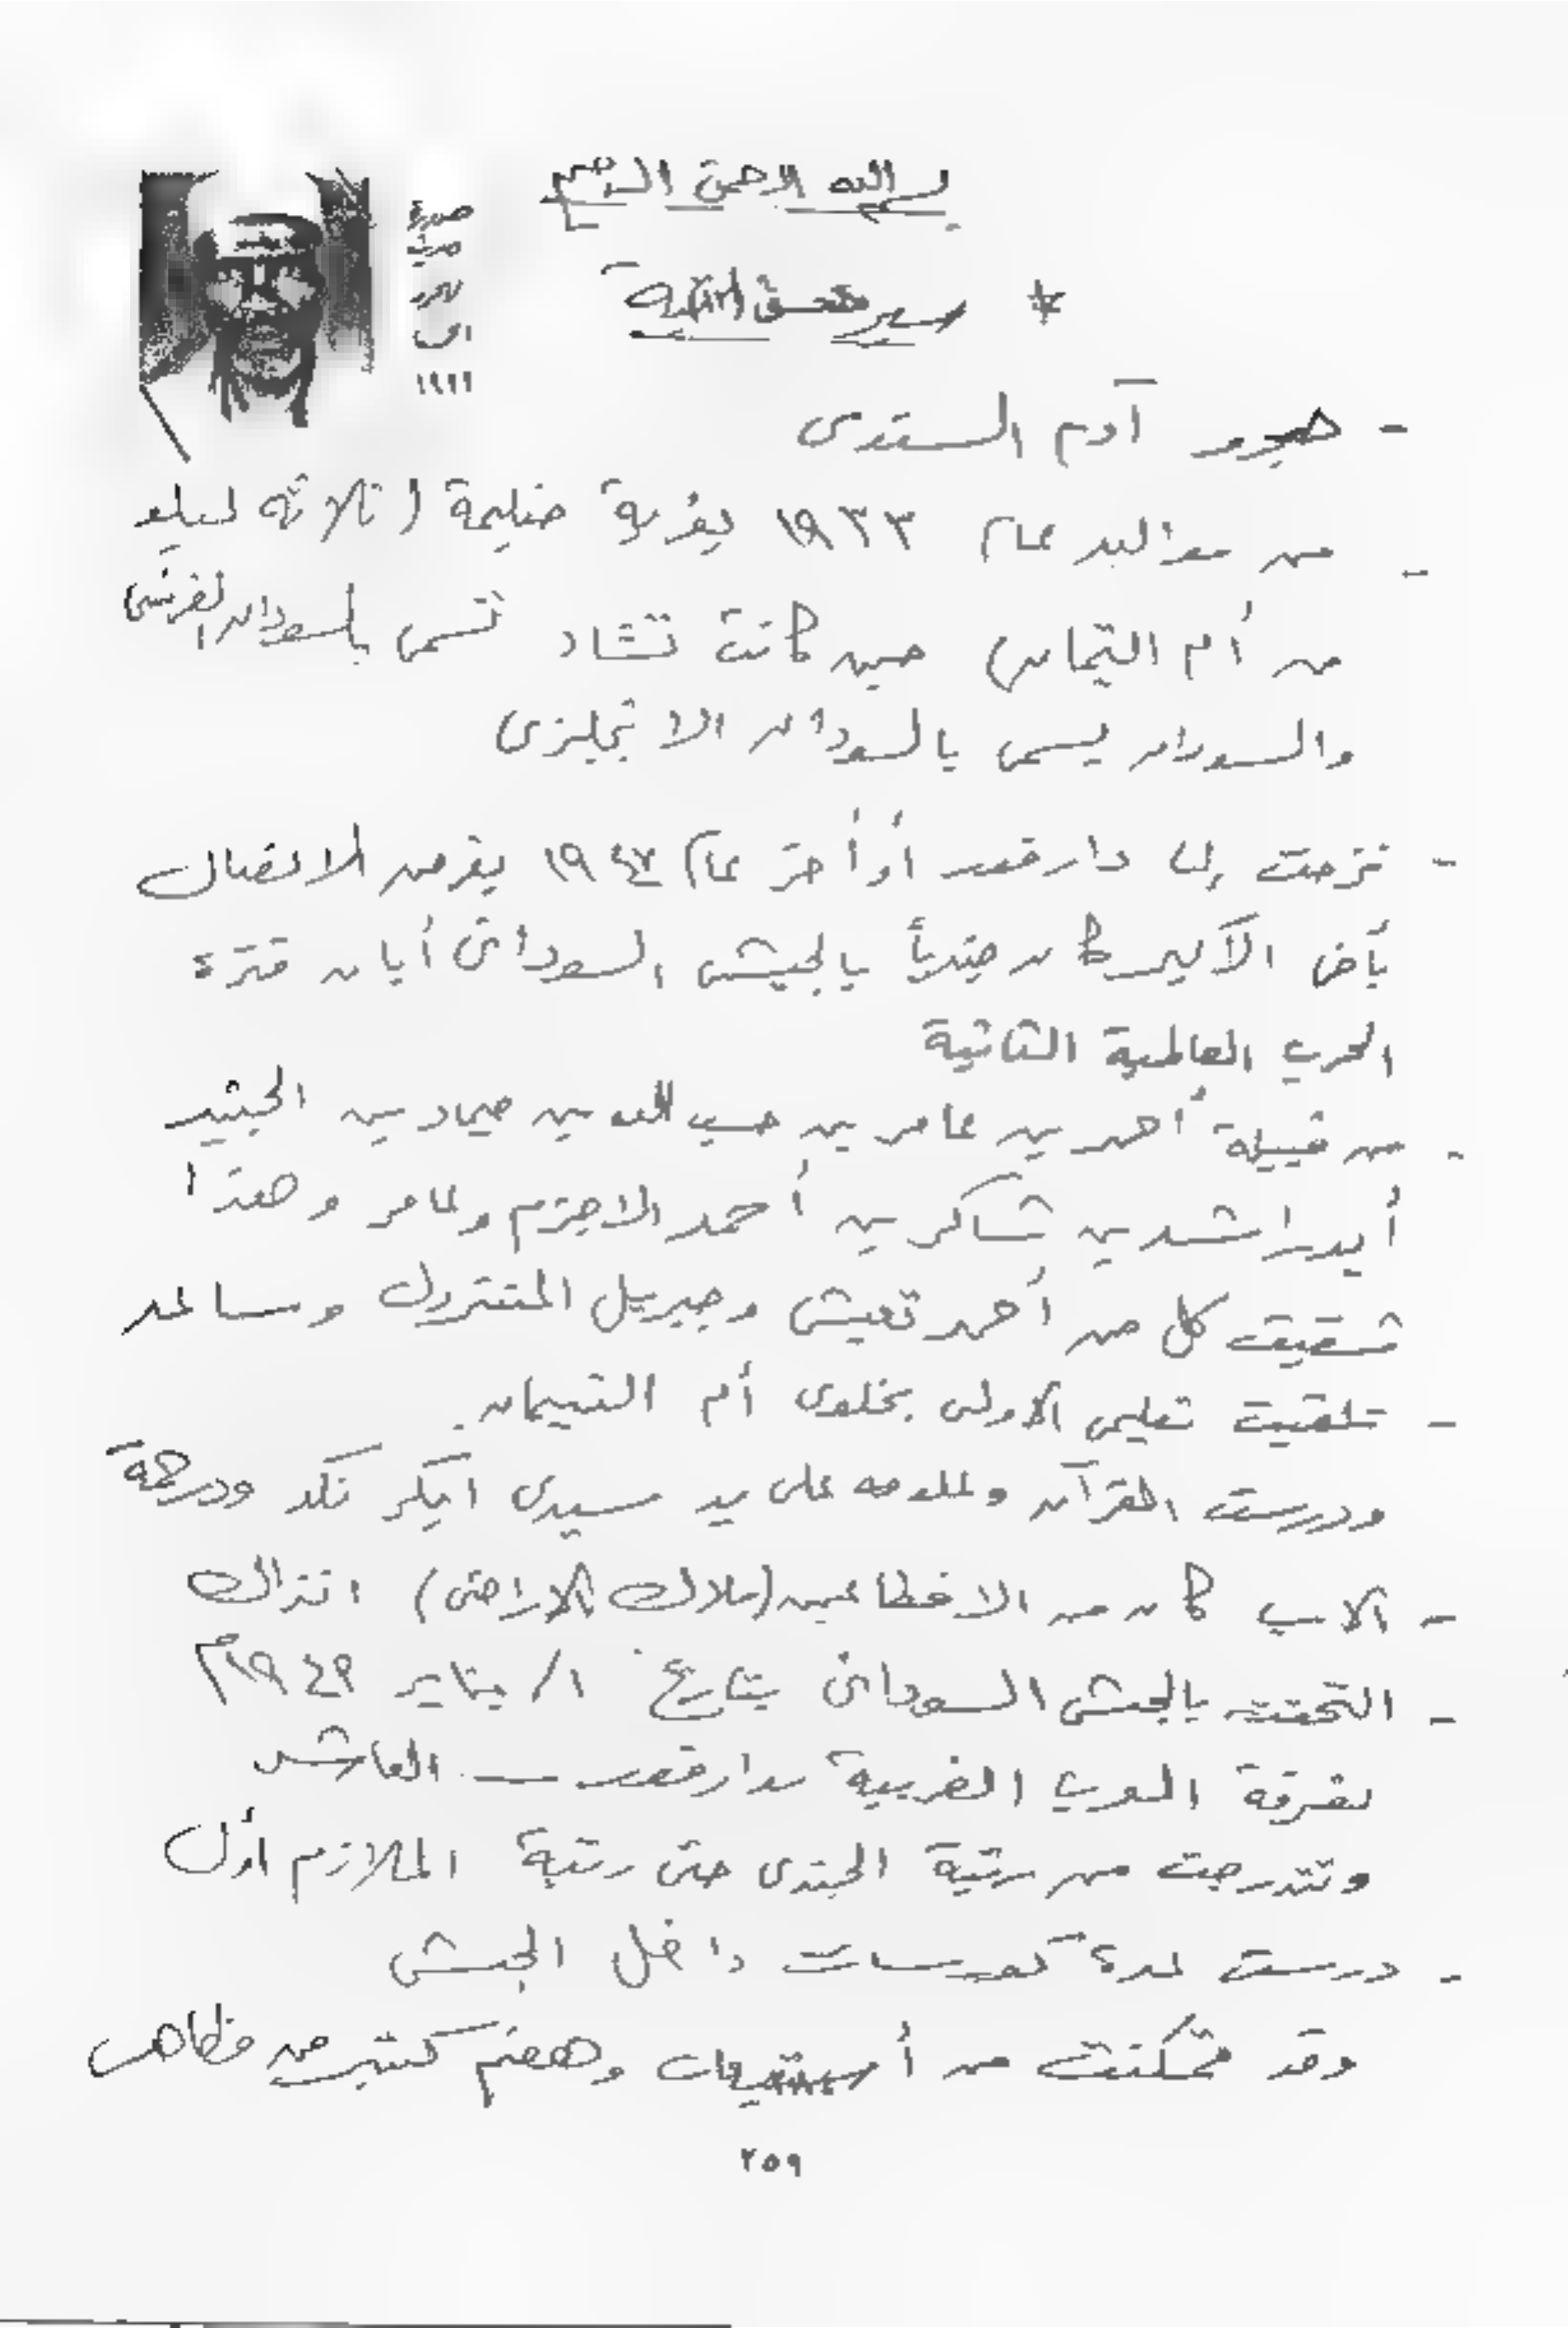 بسم الله الرحمن الرحيم
*
- آدم السندى
- من مواليد عام ١٩٣٣ بقرية ضليمة (ثلاثة كيلو
من أم التيمان) حين كانت تشاد تسمى بالسودان الفرنسى
والسودان يسمى بالسودان الانجليزى
- نزحت إلى دارفور أواخر عام ١٩٤٧ بغرض الاتصال
بأخى الأكبر كان جندياً بالجيش السودانى أبان فترة
الحرب العالمية الثانية
- من قبيلة أحمد بن عامر بن حسب الله بن حماد بن الجنيد
أبو راشد بن شاكر بن أحمد الاجزم وعامر وهذا
شقيق كل من أحمد تعيش وجبريل وساعد
- تلقيت تعليمى الاولى بخلوى أم التيمان.
ودرست القرآن وعلومه على يد سيدى ابكر
- الاب كان من الاقطاعيين (ملاك الاراضى) انذاك
- التحقت بالجيش السودانى بتاريخ ١/ يناير ١٩٤٩م
بفرقة العرب الغربية بدارفور ــ الفاشر
وتدرجت من رتبة الجندى حتى رتبة الملازم أول
- درست عدة كورسات داخل الجيش
وقد تمكنت من أستيعاب وهضم كثير من مظاهر
٢٥٩